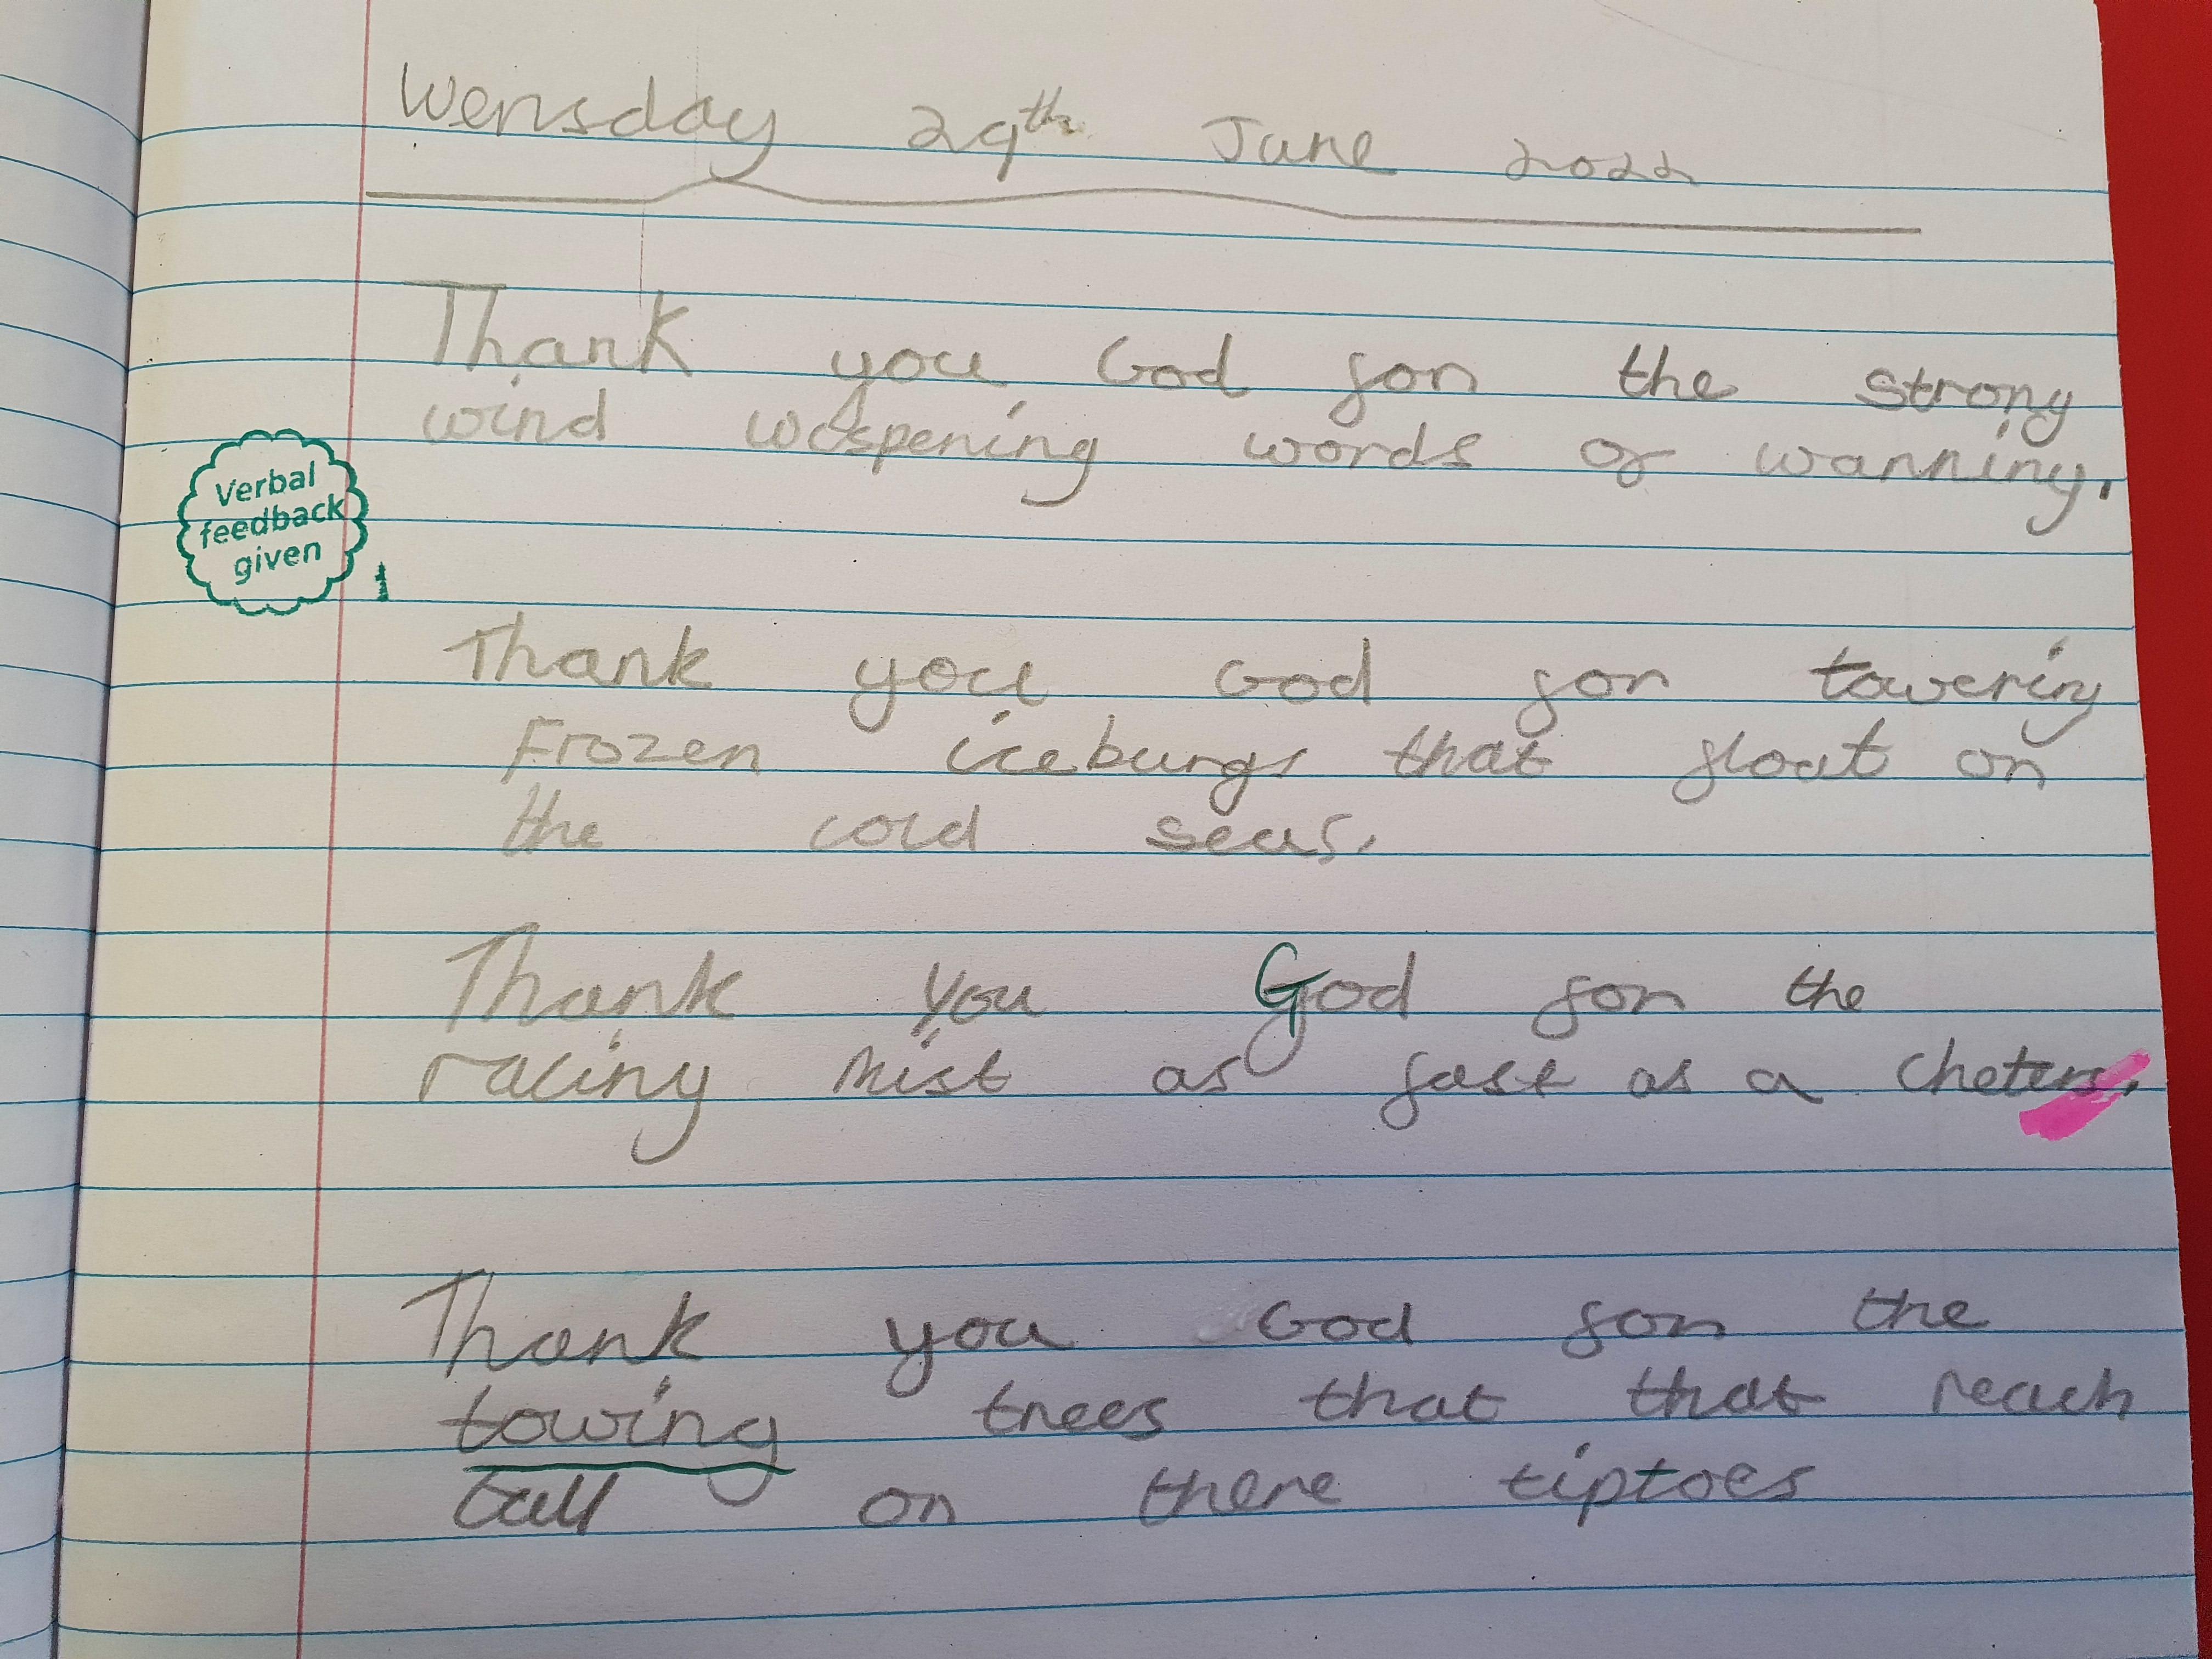 Wensday 29th June 2022
Thank you God for the strong
wind wispering words of warning.
Verbal
feedback
given
Thank you God for towering
Frozen iceburgs that float on
the cold seas.
Thank you God for the
racing mist as fast as a cheters.
Thank you God for the
towing trees that that reach
tall on there tiptoes